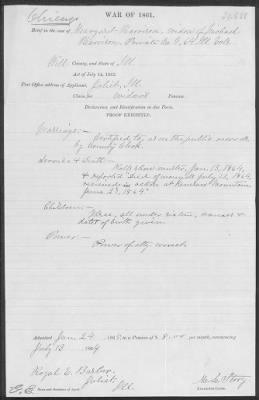 Chicago
WAR OF 1861.
Brief in the case of Margaret Harrison, widow of Michael
Harrison, Private Co. G, 64 Ill. Vols
Will County, and State of Ill
Act of July 14, 1862.
Post Office address of Applicant, Joliet, Ill.
Claim for widow's Pension.
Declaration and Identification in due Form.
PROOF EXHIBITED.
Marriage:—
Certified to, as on the public records
by County Clerk.
Service & Death:—
Rolls show muster, Jan. 15, 1864,
& report'd "Died of wounds July 13, 1864,
received in action at Kenesaw Mountain
June 27, 1864"
Children:—
Three, all under sixteen, names &
dates of birth given
Power:—
Power of atty correct
Admitted Jan 24 1865, to a Pension of $ 8.00 per month, commencing
July 13 1864
Royal E. Barber,
Joliet,
Ill.